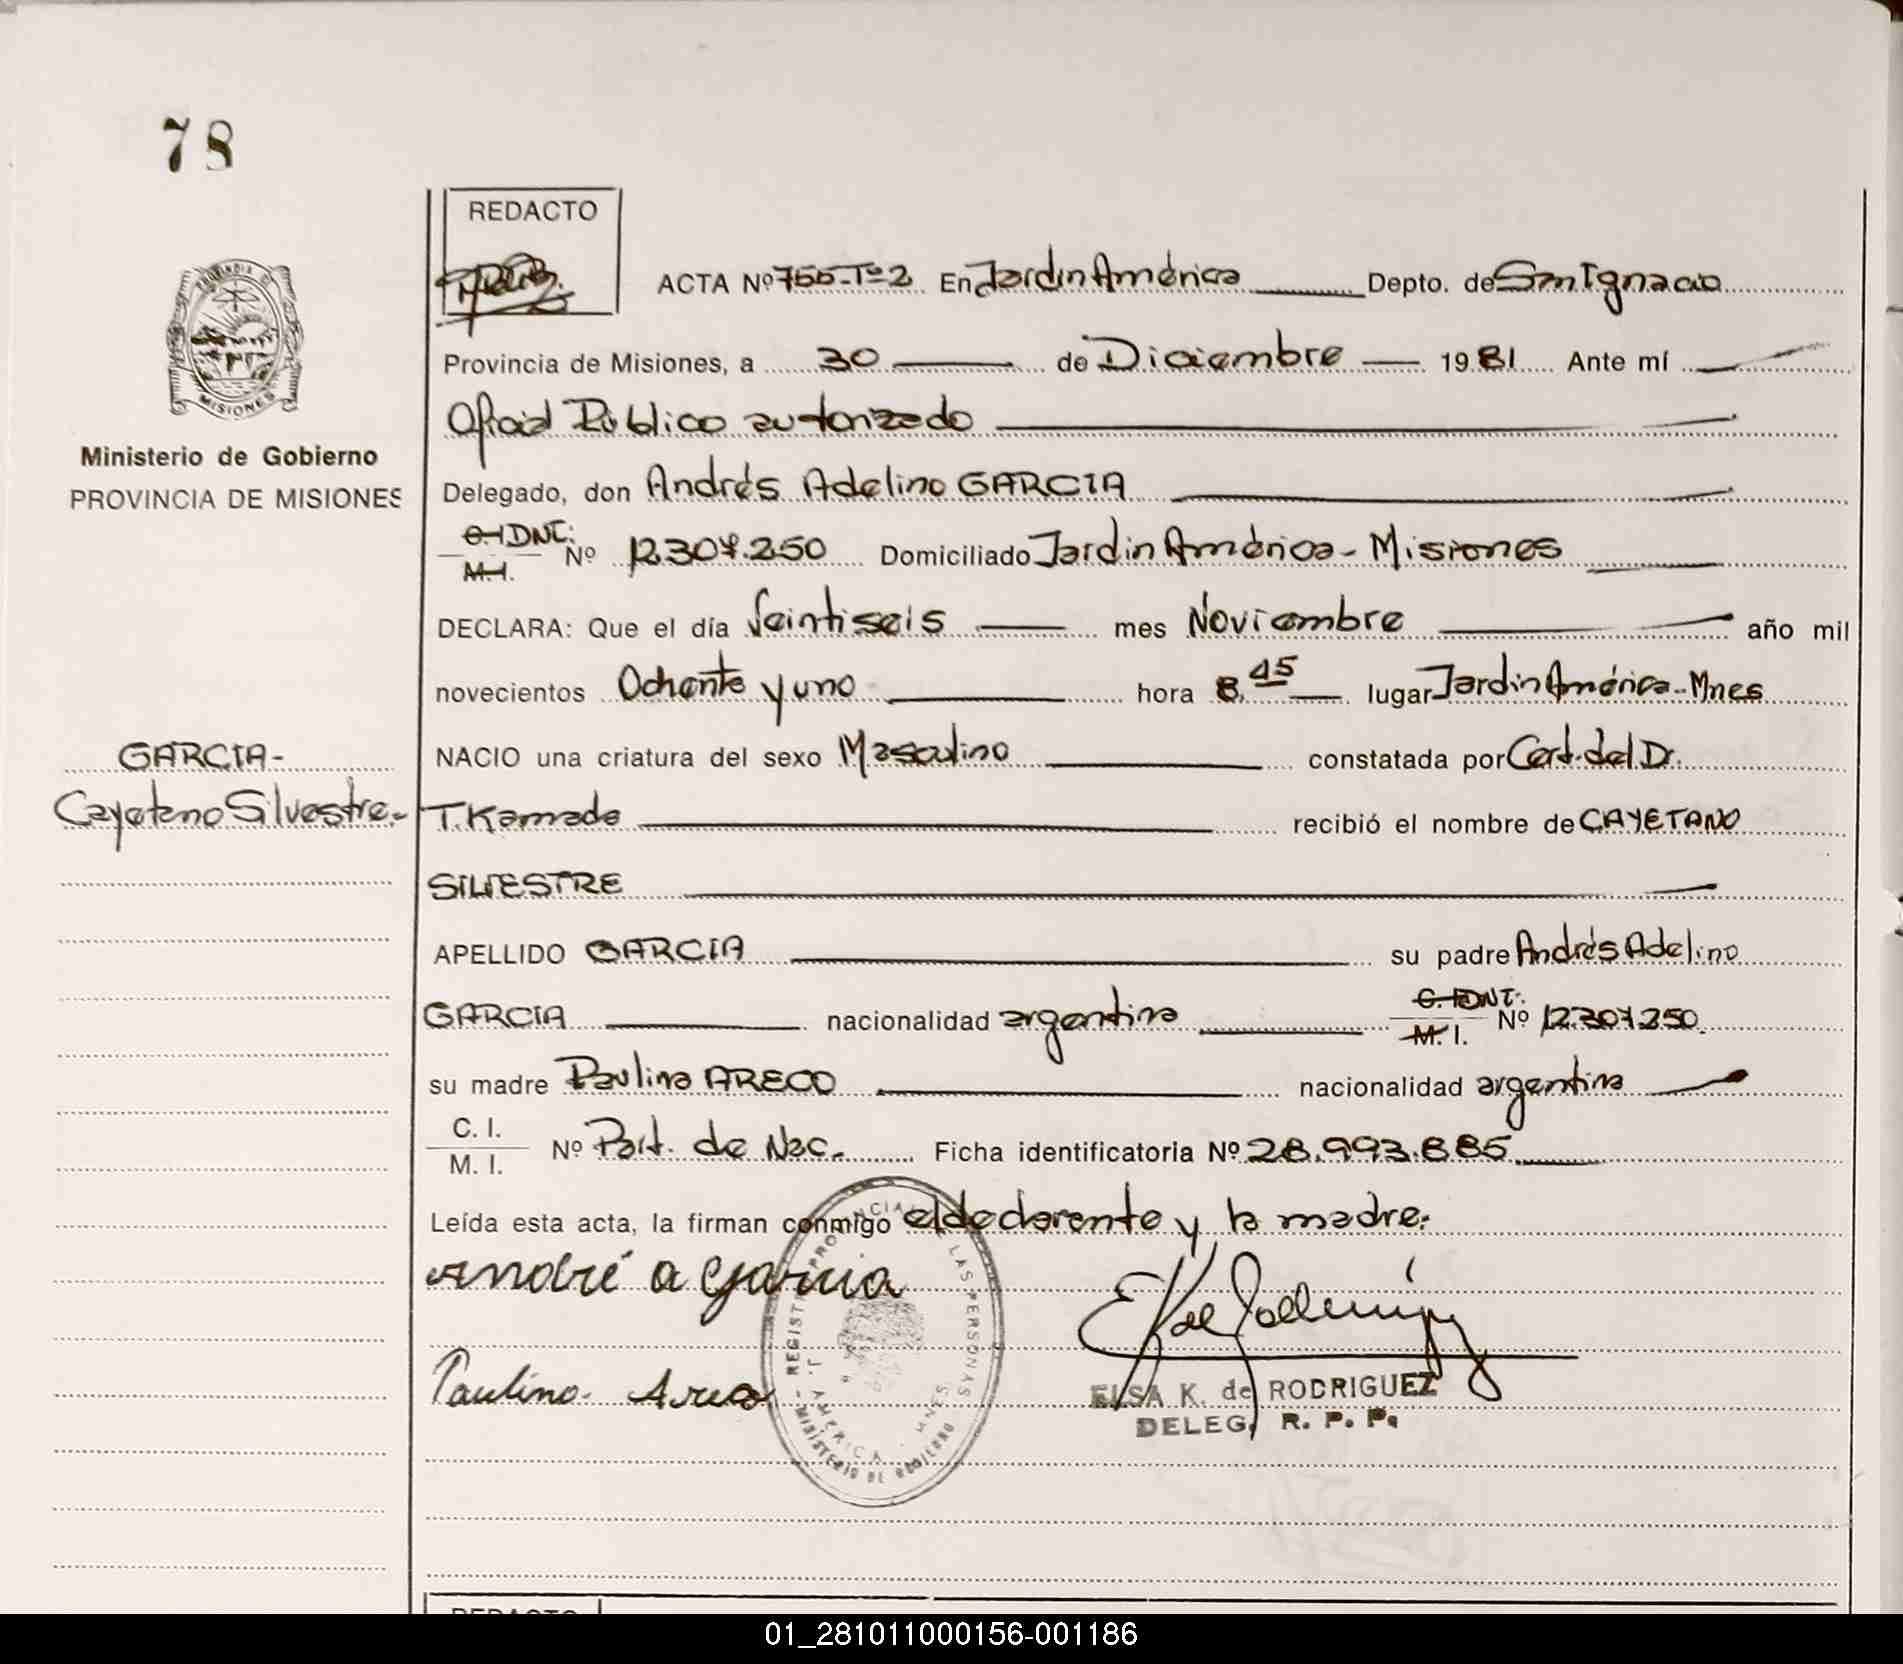 78
REDACTO
ACTA Nº 755-Tº-2 En Jardín América Depto. de San Ignacio
Provincia de Misiones, a 30 de Diciembre 1981 Ante mí
Oficial Público autorizado
Ministerio de Gobierno
PROVINCIA DE MISIONES
Delegado, don Andrés Adelino GARCIA
C.I DNI: M.I. Nº 12.307.250 Domiciliado Jardin América - Misiones
DECLARA: Que el día Veintiseis mes Noviembre año mil
novecientos Ochenta y uno hora 8,45 lugar Jardin América - Mnes
GARCIA-
Cayetano Silvestre.-
NACIO una criatura del sexo Masculino constatada por Cert. del Dr.
T. Kamada recibió el nombre de CAYETANO
SILVESTRE
APELLIDO GARCIA su padre Andrés Adelino
GARCIA nacionalidad argentina C.I DNI: M.I. Nº 12.307.250
su madre Paulina ARECO nacionalidad argentina
C. I. M. I. Nº Part. de Nac. Ficha identificatoria Nº 28.993.885
Leída esta acta, la firman conmigo el declarante y la madre.
André a Garcia
Paulina Areco
ELSA K. de RODRIGUEZ
DELEG. R. P. P.
MISIONES
REGISTRO PROVINCIAL DE LAS PERSONAS
J. AMERICA - MNES
MINISTERIO DE GOBIERNO
REDACTO
01_281011000156-001186